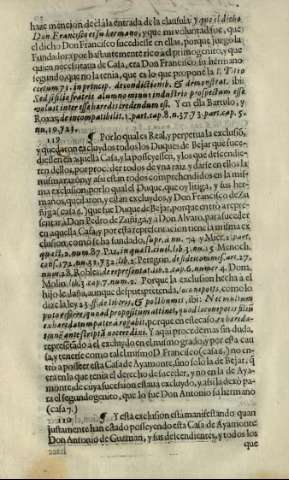 haze mencion della la entrada de la clausula: y que el dicho
Don Francisco es su hermano, y que mi voluntad fue, que
el dicho Don Francisco sucediesse en ellas, porque juzgò la
Fundadora por bastantemente rico al primogenito, y que
quien necessitaua de Casa, era Don Francisco su hermano
segundo, que no la tenia, que es lo que propone la l. Titio
centum 71. in princip. de condit. & demonstrat. ibi:
Sed si filio fratris alumno minus industrio prospectum esse
voluit interesse hæredis credendum est. Y en ella Bartulo, y
Roxas, de incompatibilit. 1. part. cap. 8. n. 37. 3. part. cap. 5.
nn. 19. 723.
119 ¶ Por lo qual es Real, y perpetua la exclusiõ,
y quedaron excluydos todos los Duques de Bejar que suce-
diessen en aquella Casa, y la posseyessen, y los que descendie-
ren dellos, por proceder todos de vna raiz, y darse en ellos la
misma razon, y assi estan todos comprehendidos en la mis-
ma exclusion, por lo qual el Duque, que oy litiga, y sus her-
manos, quedaron, y estan excluydos, y Don Francisco de Zu-
ñiga (casa 4.) que fue Duque de Bejar, porque entrò a repre-
sentar al Don Pedro de Zuñiga, y a Don Alvaro, para suceder
en aquella Casa, y por esta representacion tiene la misma ex-
clusion, como se ha fundado, supr. à nn. 74. y Mier. 1. part.
quæst. 2. num. 87. Paz,
casu 172. nn. 31. y 32. lib. 2. Peregrin. de fideicommiss. art. 27.
num. 28. Robles, de repræsentat. lib. 2. cap. 6. numer. 4. Dom.
Molin. lib. 3. cap. 7. num. 2. Porque la exclusion hecha a el
hijo le daña, aunque despues pretenda, como lo
dize la ley 3. ff. de liberis, & posthumis, ibi: Nec mutum
poterit errare, quoad propositum attinet, quod is concepit filium
ex hæredatum patre
tamen antè scriptã nocere dixit. Y aqui procede mas sin duda,
representado a el excluydo en el mismo grado, y por esta cau-
sa, y tenerse como tal el mismo D. Francisco (casa 5.) no en-
trò a posseer esta Casa de Ayamonte, sino solo la de Bejar, q̃
era en la que tenia el derecho de suceder, y no en la de Aya-
monte, de cuya sucession estaua excluydo, y assi la dexò pa-
ra el segundogenito, que lo fue Don Antonio su hermano
(casa 7.)
120 ¶ Y esta exclusion està manifestando quan
justamente han estado posseyendo esta Casa de Ayamonte
Don Antonio de Guzman, y sus descendientes, y todos los
que